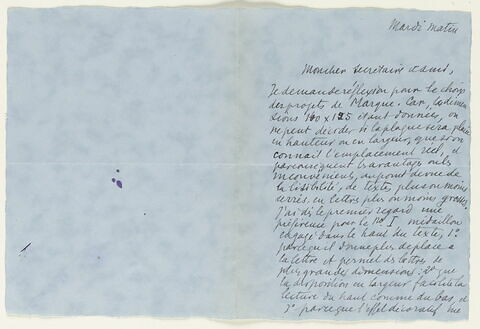 Mardi matin
Mon cher Secrétaire et ami,
Je demande réflexion pour le choix
des projets de Marque. Car, les dimen
sions 160 x 125 étant données, on
ne peut décider si la plaque sera placée
en hauteur ou en largeur, que si on
connait l'emplacement réel, et
par conséquent les avantages ou les
inconvénients, au point de vue de
la lisibilité, de textes plus ou moins
serrés en lettres plus ou moins grosses.
J'ai dès le premier regard une
préférence pour le No I médaillon
engagé dans le haut du texte, 1o
parce qu'il donne plus de place à
la lettre et permet des lettres de
plus grandes dimensions; 2o que
la disposition en largeur facilite la
lecture du haut comme du bas, et
3o parce que l'effet décoratif me